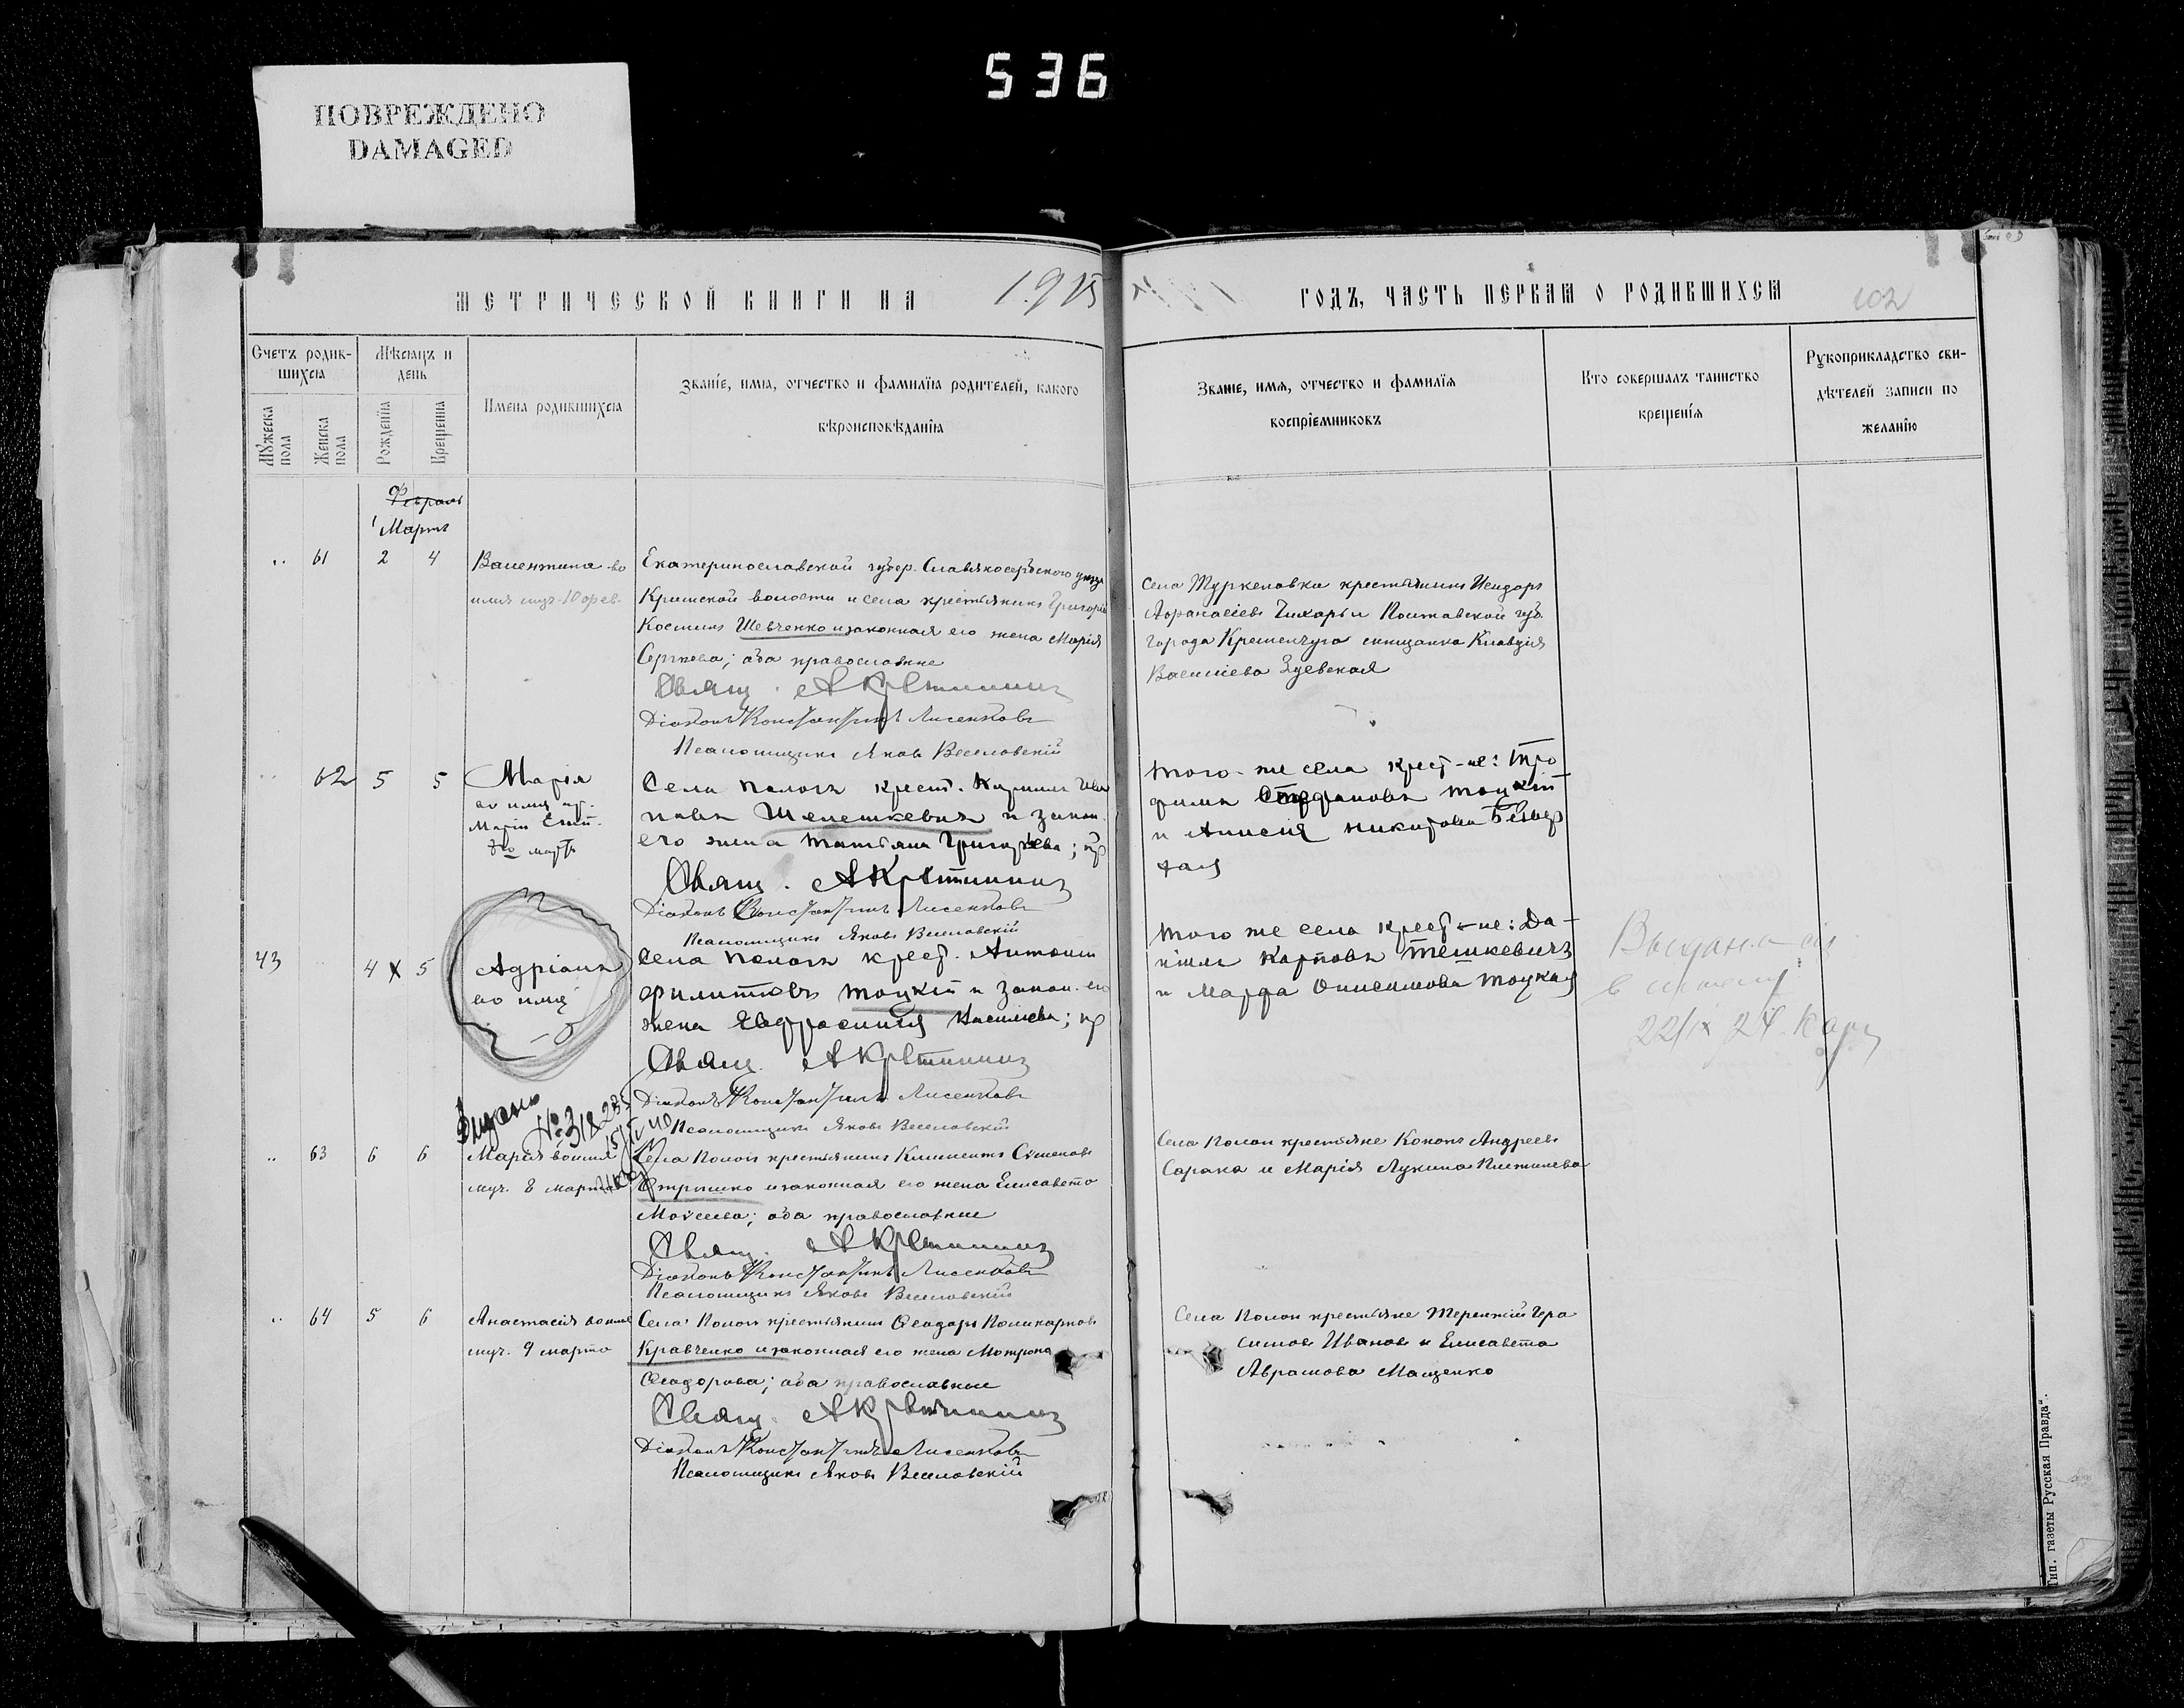 536
ПОВРЕЖДЕНО
DAMAGED
МЕТРИЧЕСКОЙ КНИГИ НА 1915
ГОДЪ, ЧАСТЬ ПЕРВАЯ О РОДИВШИХСЯ
102
Счетъ родив-
шихся
Мѣсяцъ и
день
Мужеска
пола
Женска
пола
Рожденїя
Крещенїя
Имена родившихся
Званїе, имя, отчество и фамилїя родителей, какого
вѣроисповѣданїя
Званїе, имя, отчество и фамилїя
воспрїемниковъ
Кто совершалъ таинство
крещенїя
Рукоприкладство сви-
дѣтелей записи по
желанїю
Февраль
Мартъ
61 2 4 Валентина во
имя муч. 10 фев.
Екатеринославской губер. Славяносербского уезда
Кримской волости и села крестьянинъ Григорій
Космин Шевченко и законная его жена Марія
Сергѣева; оба православные
Свящ. А Крстининъ
Діаконъ Константинъ Лисенковъ
Псаломщикъ Яковъ Веселовскій
Села Туркеловка крестьянинъ Исидоръ
Афанасіевъ Чихарь и Полтавской губ.
города Кременчуга Клавдія
Василіева
62 5 5 Марія
во имя пр.
Маріи Егип.
марта
Села Пологъ крест. Кириллъ Ива
новъ Шелешкевичъ и закон.
его жена Татьяна Григорьева; пр
Свящ. А Крстининъ
Діаконъ Константинъ Лисенковъ
Псаломщикъ Яковъ Веселовскій
того-же села крест-не: Тро
фимъ Стефановъ Тоцкій
и Анисія Никитова
43 4 х 5 Адріанъ
во имя
Села Пологъ крест. Антоній
Филиповъ Тоцкій и закон. его
жена Евфросинія Василіева; пр
Свящ. А Крстининъ
Діаконъ Константинъ Лисенковъ
Псаломщикъ Яковъ Веселовскій
того же села крест-не: Да-
ніилъ Карповъ Тешкевичъ
и Марфа Онисимова Тоцкая
22/IX 24
Видано
№ 318235
63 6 6 Марія во имя
муч. 8 марта
Села Пологъ крестьянинъ Климентъ Сѵменовъ
Отришко и законная его жена Елисавета
Моѵсеева; оба православные
Свящ. А Крстининъ
Діаконъ Константинъ Лисенковъ
Псаломщикъ Яковъ Веселовскій
Села Пологи крестьяне Кононъ Андреевъ
Сорока и Марія Лукина
64 5 6 Анастасія во имя
муч. 9 марта
Села Пологъ крестьянинъ Ѳеодоръ Поликарповъ
Кравченко и законная его жена Мотрона
Ѳеодорова; оба православные
Свящ. А Крстининъ
Діаконъ Константинъ Лисенковъ
Псаломщикъ Яковъ Веселовскій
Села Пологи крестьяне Терентій Гера
симовъ Ивановъ и Елисавета
Аврамова Мащенко
Тип. газеты Русская Правда".